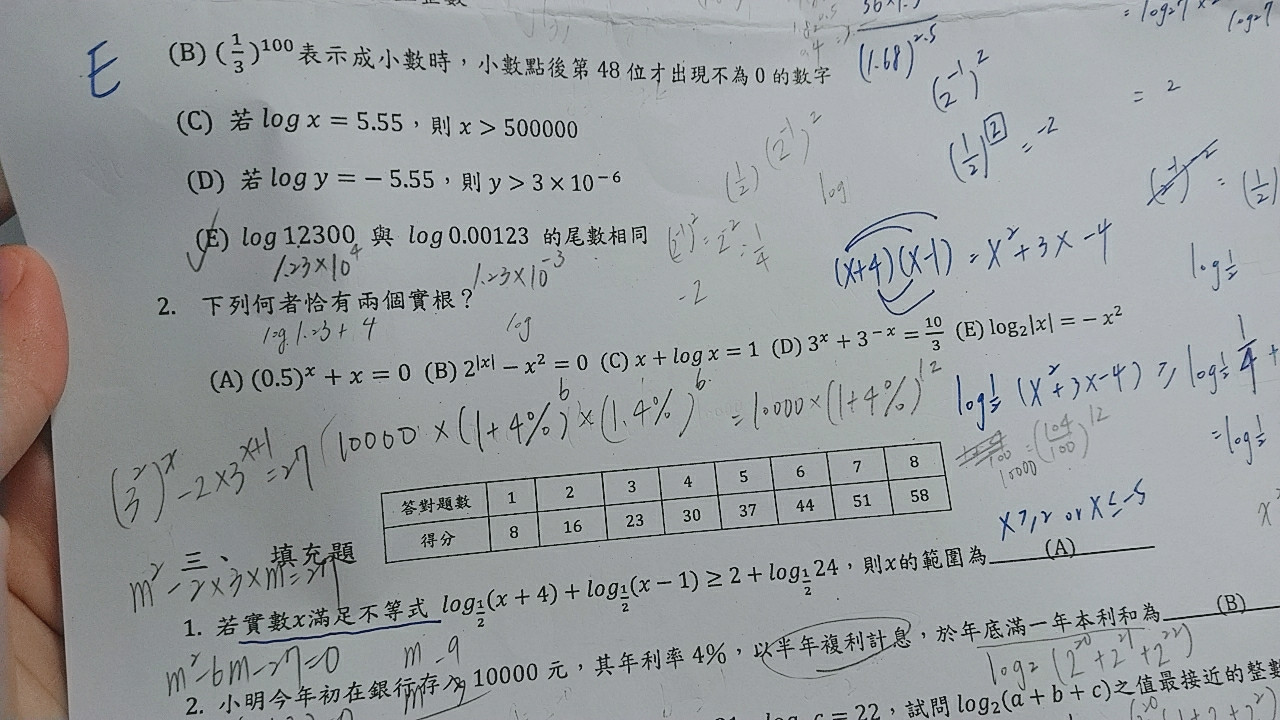 E
(B) (1/3)^100 表示成小數時，小數點後第 48 位才出現不為 0 的數字
(1.68)^2.5
(2^-1)^2
= 2
(C) 若 log x = 5.55，則 x > 500000
(1/2) (2^-1)^2
(1/2)^2 = -2
(D) 若 log y = − 5.55，則 y > 3 × 10^−6
log
(E) log 12300 與 log 0.00123 的尾數相同
1.23×10^4
1.23×10^-3
(2^-1)^2 = 2^-2 = 1/4
-2
(x+4)(x-1) = x^2+3x-4
2. 下列何者恰有兩個實根？
log 1.23 + 4
log
(A) (0.5)^x + x = 0 (B) 2^|x| − x^2 = 0 (C) x + log x = 1 (D) 3^x + 3^−x = 10/3 (E) log_2|x| = − x^2
10000 × (1+4%)^6 × (1.4%)^6 = 10000×(1+4%)^12
log_1/2 (x^2+3x-4) ≥ log_1/2 1/4 +
= log_1/2
(3^2)^x -2×3^x+1 = 27
10000 (104/100)^12
答對題數 1 2 3 4 5 6 7 8
得分 8 16 23 30 37 44 51 58
x≥2 or x≤-5
三、 填充題
m^2 -2×3×m=27
1. 若實數x滿足不等式 log_1/2(x + 4) + log_1/2(x − 1) ≥ 2 + log_1/2 24，則x的範圍為 (A)
m^2-6m-27=0
m -9
2. 小明今年初在銀行存入 10000 元，其年利率 4%，以半年複利計息，於年底滿一年本利和為 (B)
log_2 (2^20+2^21+2^22)
c = 22，試問 log_2(a + b + c)之值最接近的整數